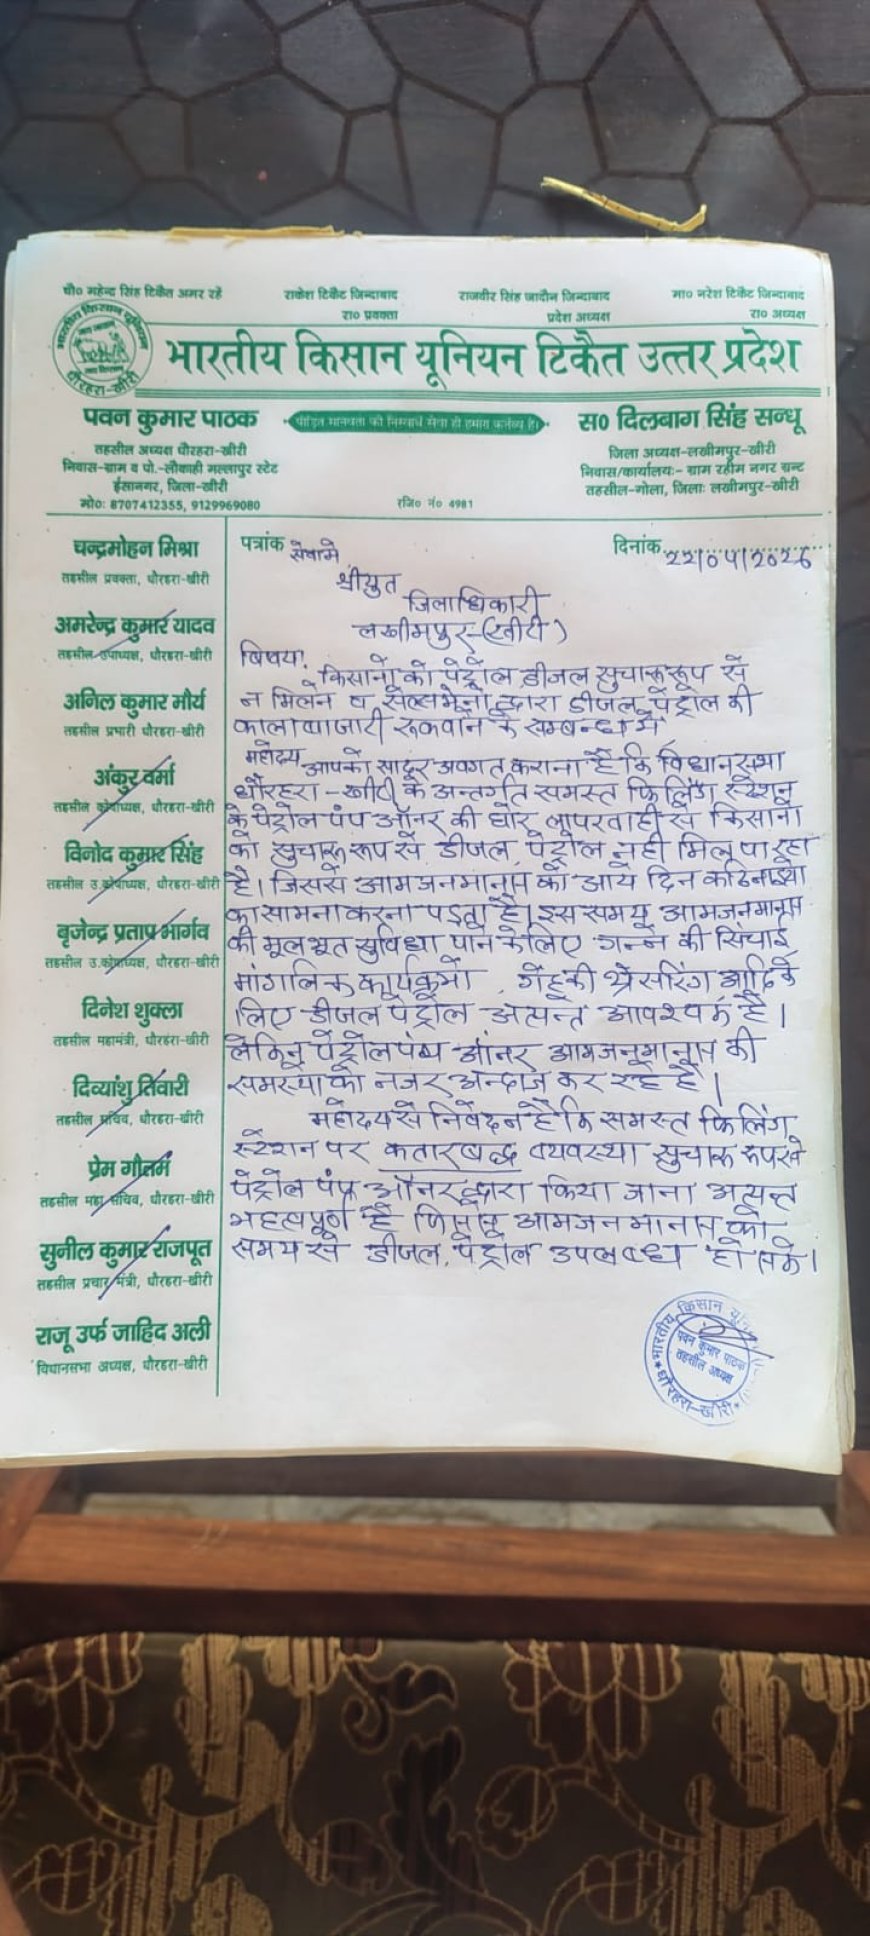 चौ० महेन्द्र सिंह टिकैत अमर रहें
राकेश टिकैट जिन्दाबाद
रा० प्रवक्ता
राजवीर सिंह जादौन जिन्दाबाद
प्रदेश अध्यक्ष
मा० नरेश टिकैट जिन्दाबाद
रा० अध्यक्ष
भारतीय किसान यूनियन
धौरहरा-खीरी
भारतीय किसान यूनियन टिकैत उत्तर प्रदेश
पवन कुमार पाठक
तहसील अध्यक्ष धौरहरा-खीरी
निवास-ग्राम व पो.-लौकाही मल्लापुर स्टेट
ईसानगर, जिला-खीरी
मो०: 8707412355, 9129969080
पीड़ित मानवता की निस्वार्थ सेवा ही हमारा कर्तव्य है।
रजि० नं० 4981
स० दिलबाग सिंह सन्धू
जिला अध्यक्ष-लखीमपुर-खीरी
निवास/कार्यालय:- ग्राम रहीम नगर ग्रन्ट
तहसील-गोला, जिला: लखीमपुर-खीरी
चन्द्रमोहन मिश्रा
तहसील प्रवक्ता, धौरहरा-खीरी
अमरेन्द्र कुमार यादव
तहसील उपाध्यक्ष, धौरहरा-खीरी
अनिल कुमार मौर्य
तहसील प्रभारी धौरहरा-खीरी
अंकुर वर्मा
तहसील कोषाध्यक्ष, धौरहरा-खीरी
विनोद कुमार सिंह
तहसील उ.कोषाध्यक्ष, धौरहरा-खीरी
बृजेन्द्र प्रताप भार्गव
तहसील उ.कोषाध्यक्ष, धौरहरा-खीरी
दिनेश शुक्ला
तहसील महामंत्री, धौरहरा-खीरी
दिव्यांशु तिवारी
तहसील सचिव, धौरहरा-खीरी
प्रेम गौतम
तहसील महा सचिव, धौरहरा-खीरी
सुनील कुमार राजपूत
तहसील प्रचार मंत्री, धौरहरा-खीरी
राजू उर्फ जाहिद अली
विधानसभा अध्यक्ष, धौरहरा-खीरी
पत्रांक सेवामे
दिनांक 22/04/2026
श्रीयुत
जिलाधिकारी
लखीमपुर-(खीरी)
बिषय:
किसानों को पेट्रोल डीजल सुचारू रूप से
न मिलने व सेल्समेनो द्वारा डीजल, पेट्रोल की
कालाबाजारी रूकवाने के सम्बन्ध में
महोदय आपको सादर अवगत कराना है कि विधानसभा
धौरहरा-खीरी के अन्तर्गत समस्त फिलिंग स्टेशन
के पेट्रोल पंप ऑनर की घोर लापरवाही से किसानो
को सुचारू रूप से डीजल, पेट्रोल नही मिल पा रहा
है। जिससे आमजनमानस को आये दिन कठिनाइयो
का सामना करना पड़ता है। इस समय आमजनमानस
की मूलभूत सुविधा पाने के लिए गन्ने की सिंचाई
मांगलिक कार्यक्रमो, गेहू की थ्रेसरिंग आदि के
लिए डीजल पेट्रोल अत्यन्त आवश्यक है।
लेकिन पेट्रोल पंप ऑनर आमजनमानस की
समस्या को नजर अन्दाज कर रहे है।
महोदय से निवेदन है कि समस्त फिलिंग
स्टेशन पर कतारबद्ध व्यवस्था सुचारू रूप से
पेट्रोल पंप ऑनर द्वारा किया जाना अत्यन्त
महत्वपूर्ण है जिससे आमजन मानस को
समय से डीजल, पेट्रोल उपलब्ध हो सके।
भारतीय किसान यू
पवन कुमार पाठक
तहसील अध्यक्ष
धौरहरा-खीरी